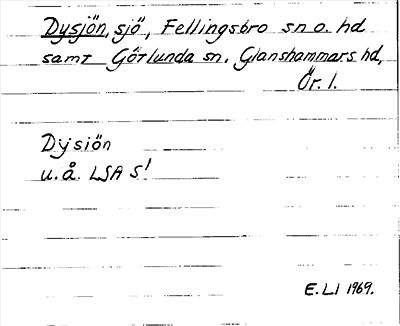 Dysjön, sjö, Fellingsbro sn o. hd
samt Götlunda sn, Glanshammars hd,
Ör. l.
Dÿsiön
u.å. LSA S!
E.LI 1969.